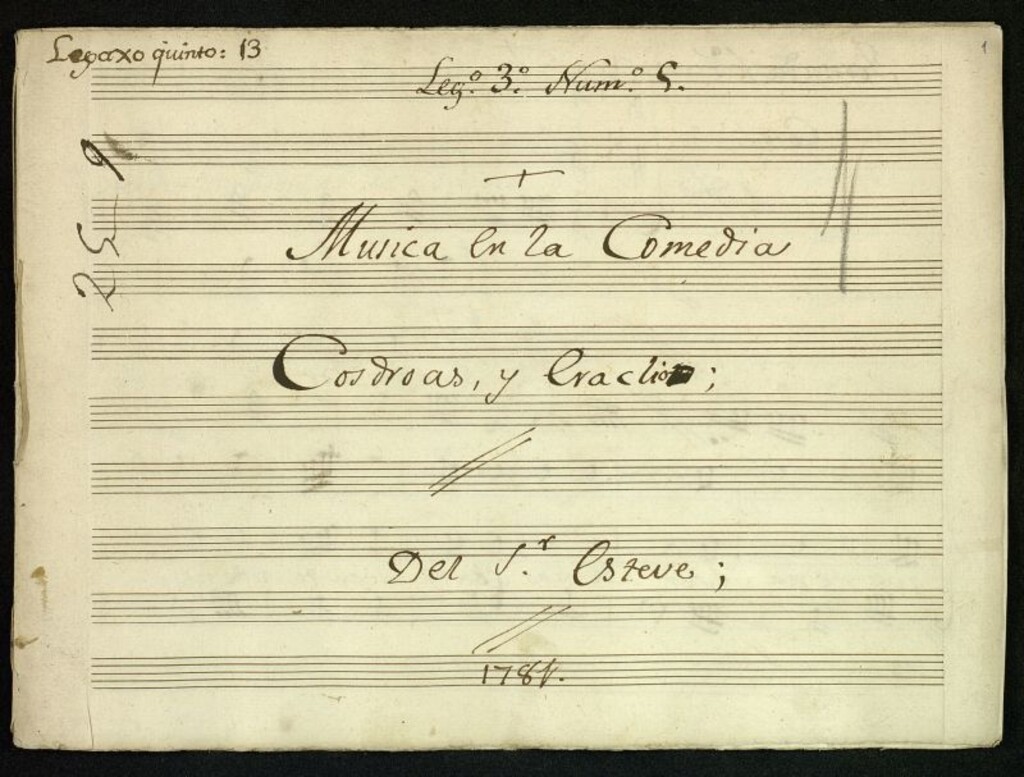 Legaxo quinto: 13
1
Leg.º 3.º Num.º 5.
25-9
Musica en la Comedia
Cosdroas, y Eraclio;
Del S.r Esteve;